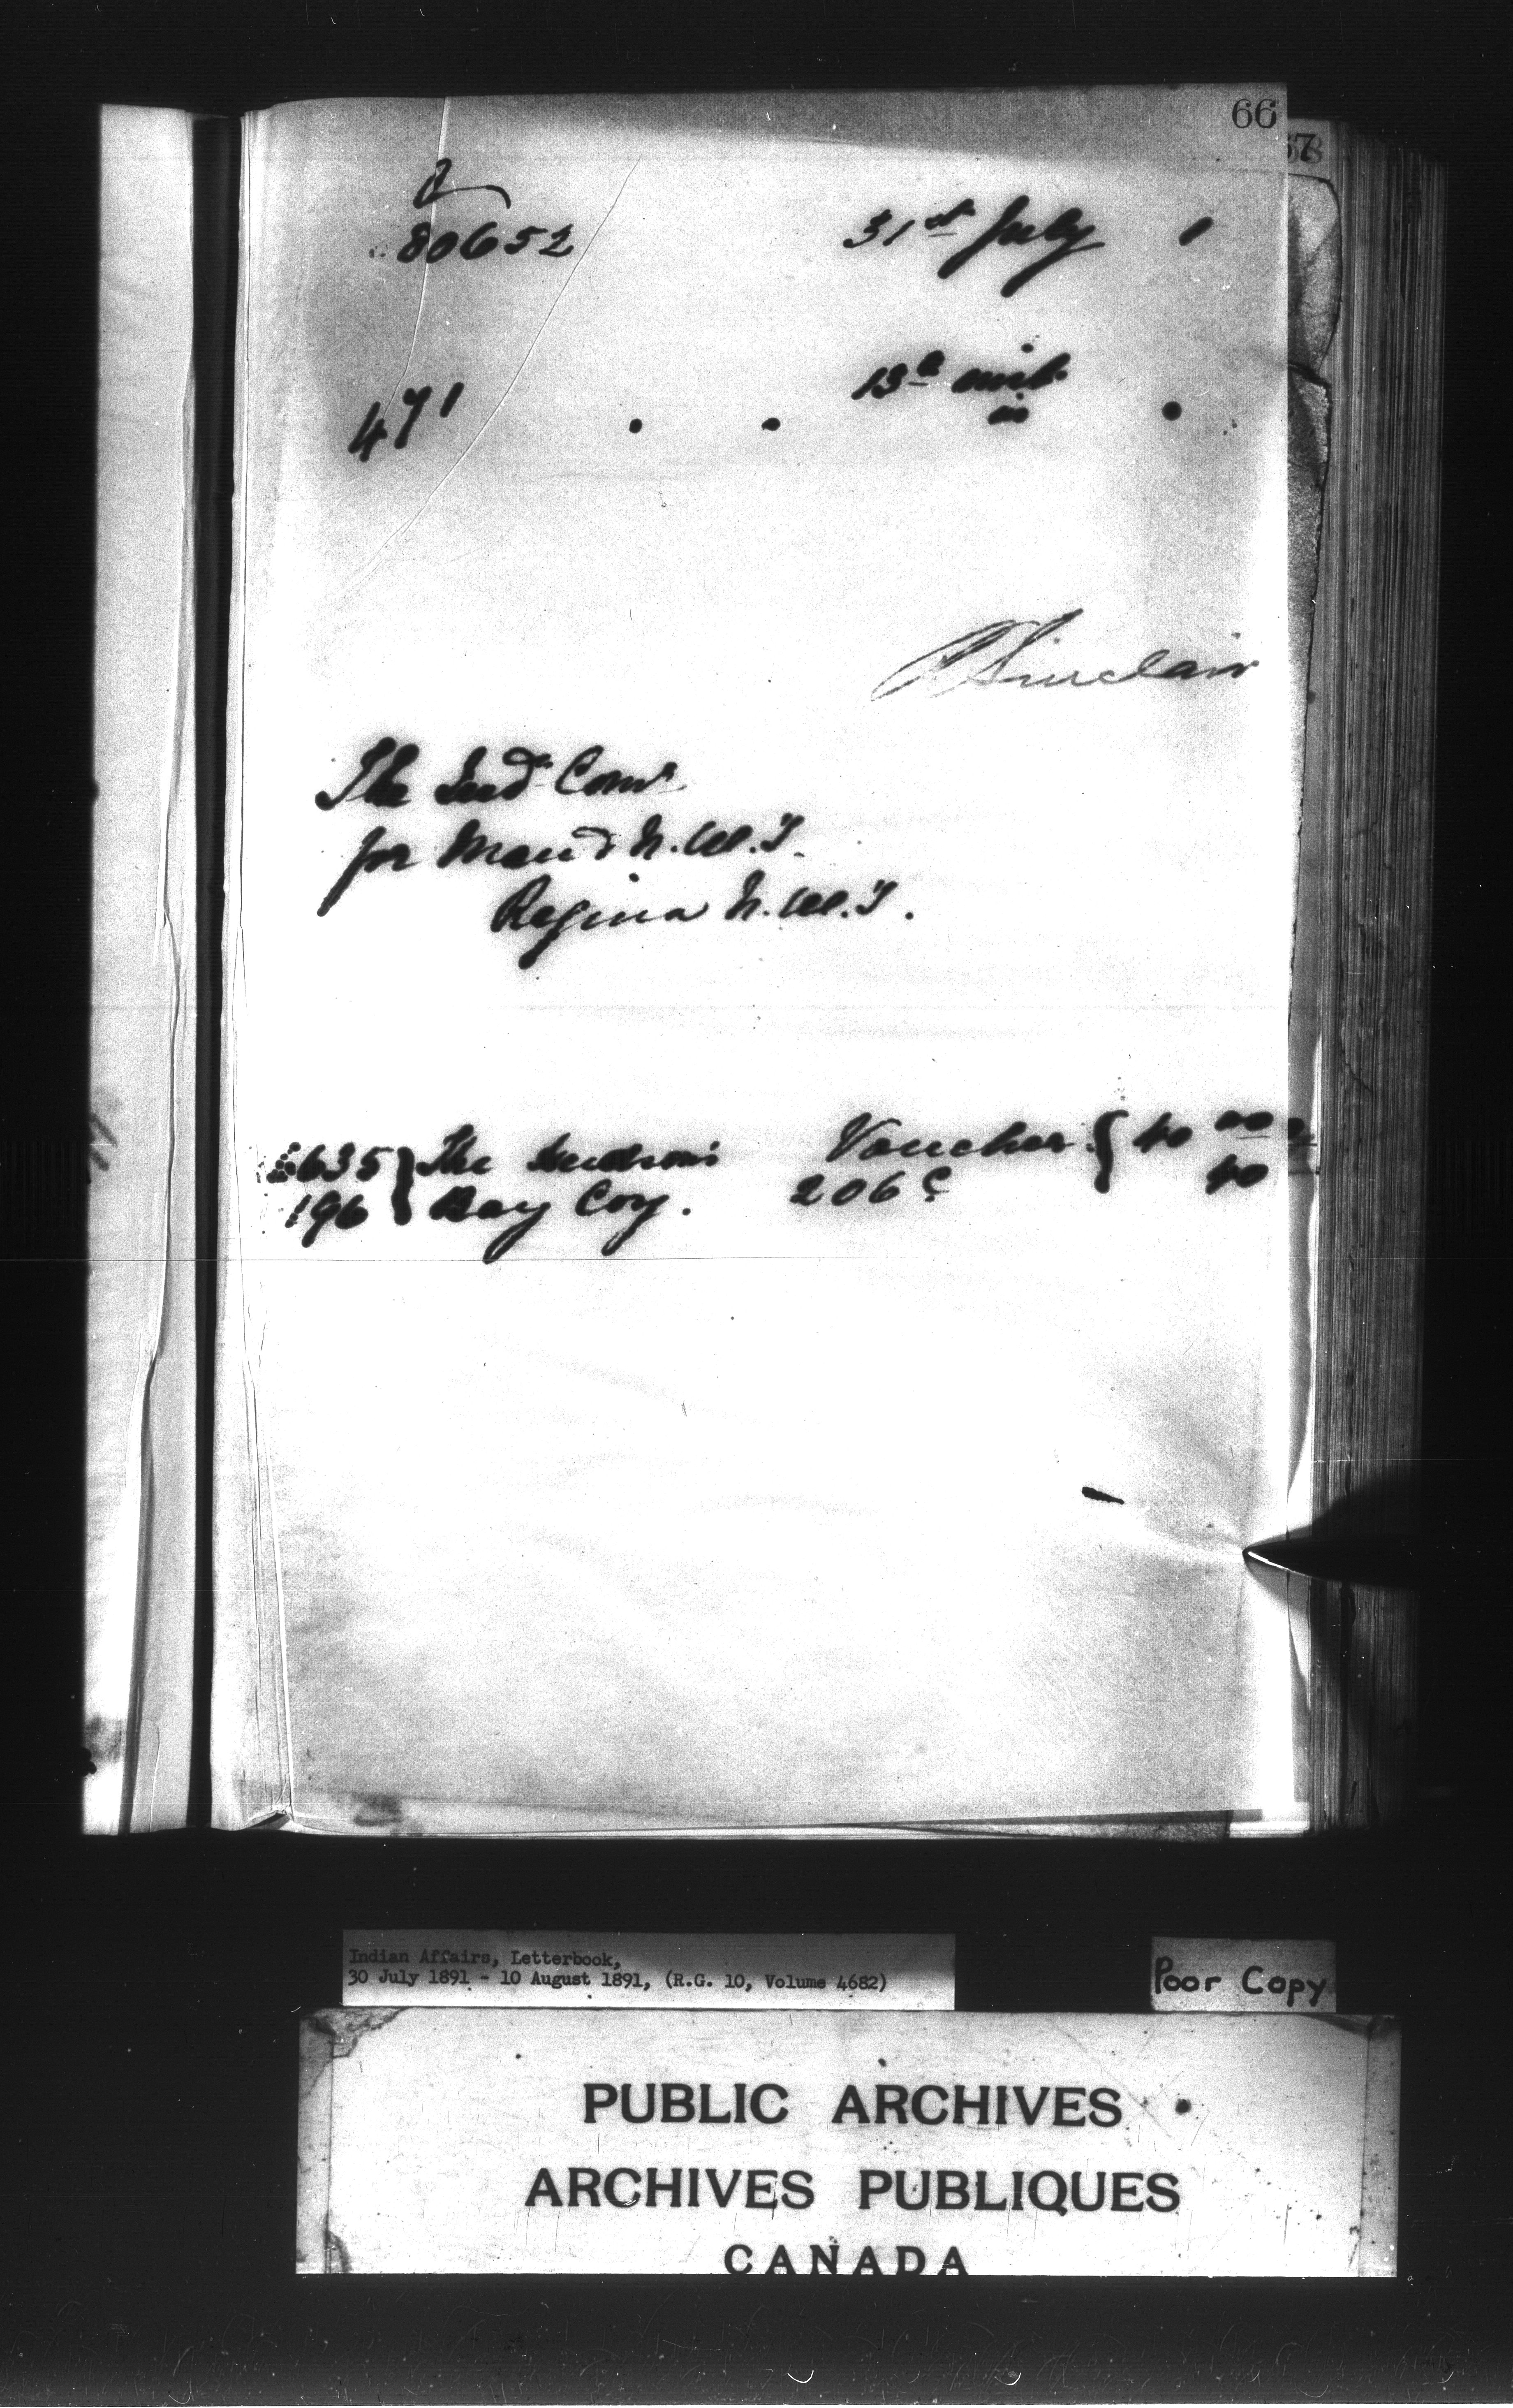 66
80652 31st July 1
471 . . 13th inst .
in
Sinclair
The Ind. Comr
for Man & N.W.T.
Regina N.W.T.
635 } The Hudson's Voucher { 40 00
196 } Bay Coy. 206 c 40
Indian Affairs, Letterbook,
30 July 1891 - 10 August 1891, (R.G. 10, Volume 4682)
Poor Copy
PUBLIC ARCHIVES
ARCHIVES PUBLIQUES
CANADA